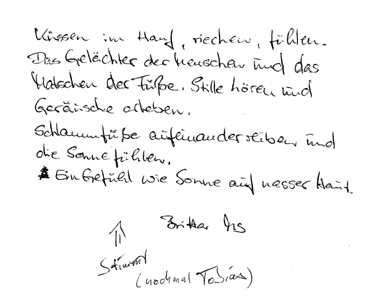 Küssen im Hanf, riechen, fühlen.
Das Gelächter der Menschen und das
Matschen der Füße. Stille hören und
Geräusche erleben.
Schlammfüße aufeinander reiben und
die Sonne fühlen.
Ein Gefühl wie Sonne auf nasser Haut.
(nochmal Tobias)